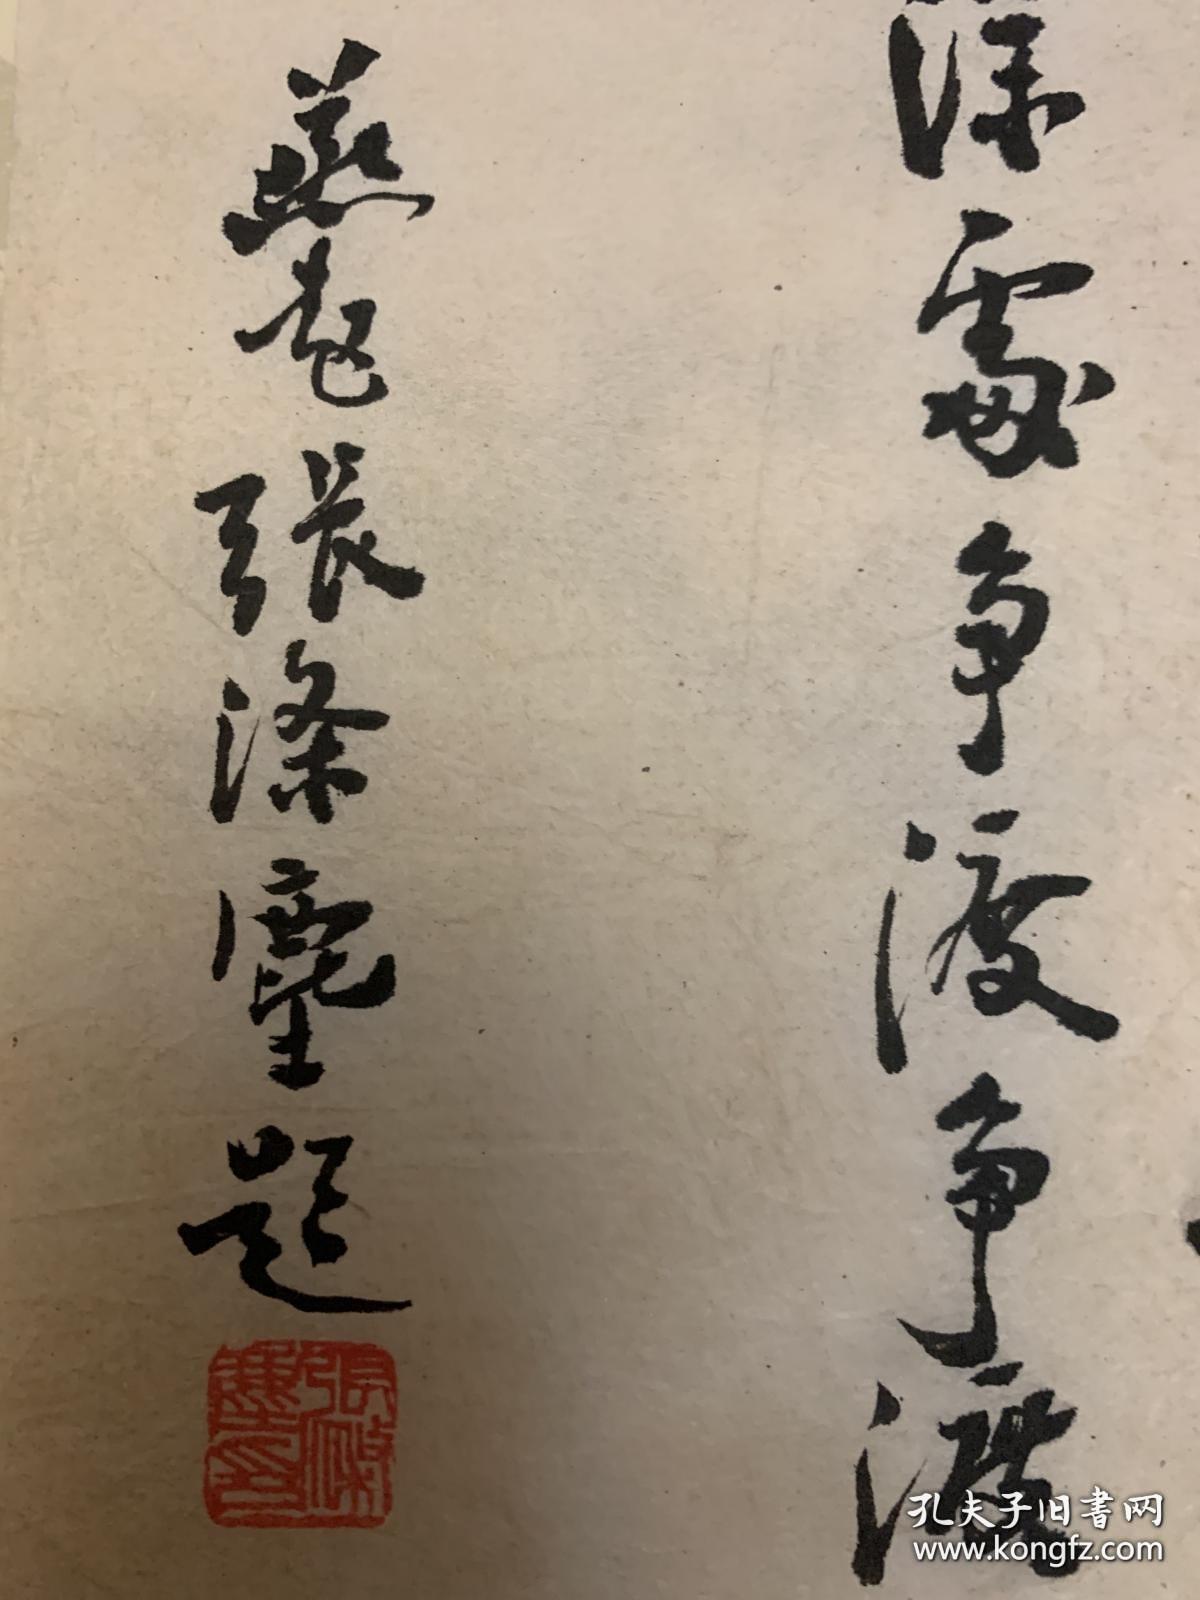 深處争渡争渡
燕 張滌塵題
張滌塵印
孔夫子旧書网
www.kongfz.com